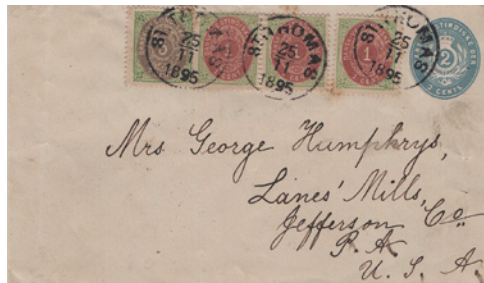 ST THOMAS
25
11
1895
ST THOMAS
25
11
1895
ST THOMAS
25
11
1895
1
1
1
2
2 CENTS
Mrs George Humphrys,
Lanes' Mills,
Jefferson Co
P.A.
U. S. A.